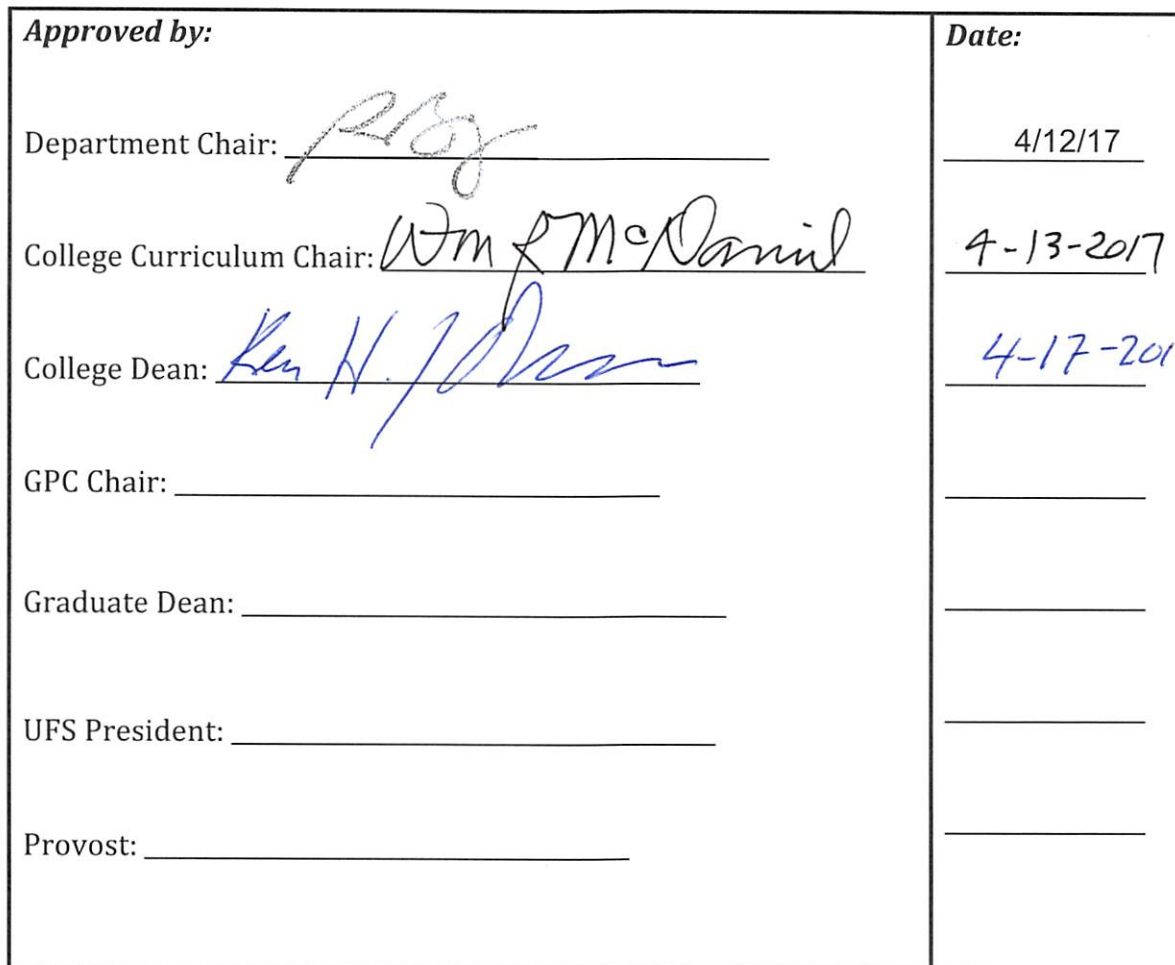 Approved by: Date:
Department Chair: 4/12/17
College Curriculum Chair: Wm L McDaniel 4-13-2017
College Dean: Ken H. 4-17-201
GPC Chair:
Graduate Dean:
UFS President:
Provost: